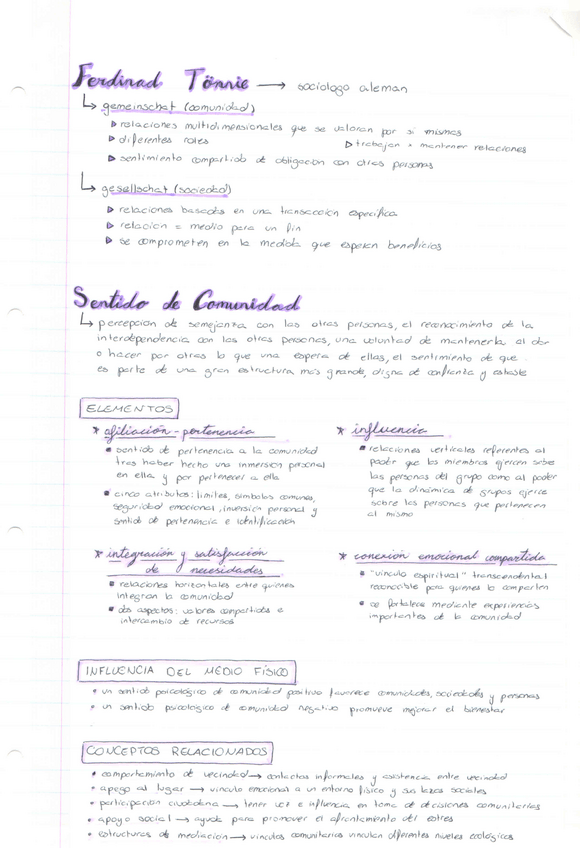 Ferdinad Tönnie → sociologo aleman
↳ gemeinschat (comunidad)
▷ relaciones multidimensionales que se valoran por si mismas
▷ diferentes roles ▷ trabajan x mantener relaciones
▷ sentimiento compartido de obligacion con otras personas
↳ gesellschat (sociedad)
▷ relaciones basadas en una transaccion especifica
▷ relacion = medio para un fin
▷ se comprometen en la medida que esperan beneficios
Sentido de Comunidad
↳ percepcion de semejanza con las otras personas, el reconocimiento de la
interdependencia con las otras personas, una voluntad de mantenerla al dar
o hacer por otros lo que una espera de ellas, el sentimiento de que
es parte de una gran estructura mas grande, digna de confianza y estable
ELEMENTOS
* afiliación - pertenencia
• sentido de pertenencia a la comunidad
tras haber hecho una inmersion personal
en ella y por pertenecer a ella
• cinco atributos: limites, simbolos comunes,
seguridad emocional, inversión personal y
sentido de pertenencia e identificacion
* influencia
• relaciones verticales referentes al
poder que los miembros ejercen sobre
las personas del grupo como al poder
que la dinamica de grupos ejerce
sobre las personas que pertenecen
al mismo
* integración y satisfacción
de necesidades
• relaciones horizontales entre quienes
integran la comunidad
• dos aspectos: valores compartidos e
intercambio de recursos
* conexión emocional compartida
• "vinculo espiritual" transcendental
reconocible para quienes lo comparten
• se fortalece mediante experiencias
importantes de la comunidad
INFLUENCIA DEL MEDIO FÍSICO
• un sentido psicológico de comunidad positivo favorece comunidades, sociedades y personas
• un sentido psicológico de comunidad negativo promueve mejorar el bienestar
CONCEPTOS RELACIONADOS
• comportamiento de vecindad → contactos informales y asistencia entre vecindad
• apego al lugar → vinculo emocional a un entorno fisico y sus lazos sociales
• participación ciudadana → tener voz e influencia en toma de decisiones comunitarias
• apoyo social → ayuda para promover el afrontamiento del estres
• estructuras de mediacion → vinculos comunitarios vinculan diferentes niveles ecológicos